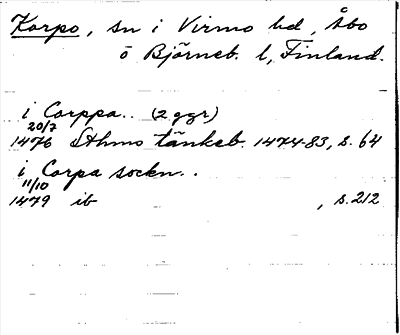 Korpo, sn i Virmo hd, Åbo
o Björneb. l, Finland.
i Corppa.. (2 ggr)
20/7
1476 Sthms tänkeb. 1474-83, s. 64
i Corpa sockn..
11/10
1479 ib , s. 212